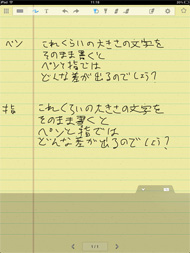 ペン これくらいの大きさの文字を
そのまま書くと
ペンと指では
どんな差が出るのでしょう?
指 これくらいの大きさの文字を
そのまま書くと
ペンと指では
どんな差が出るのでしょう?
1/1